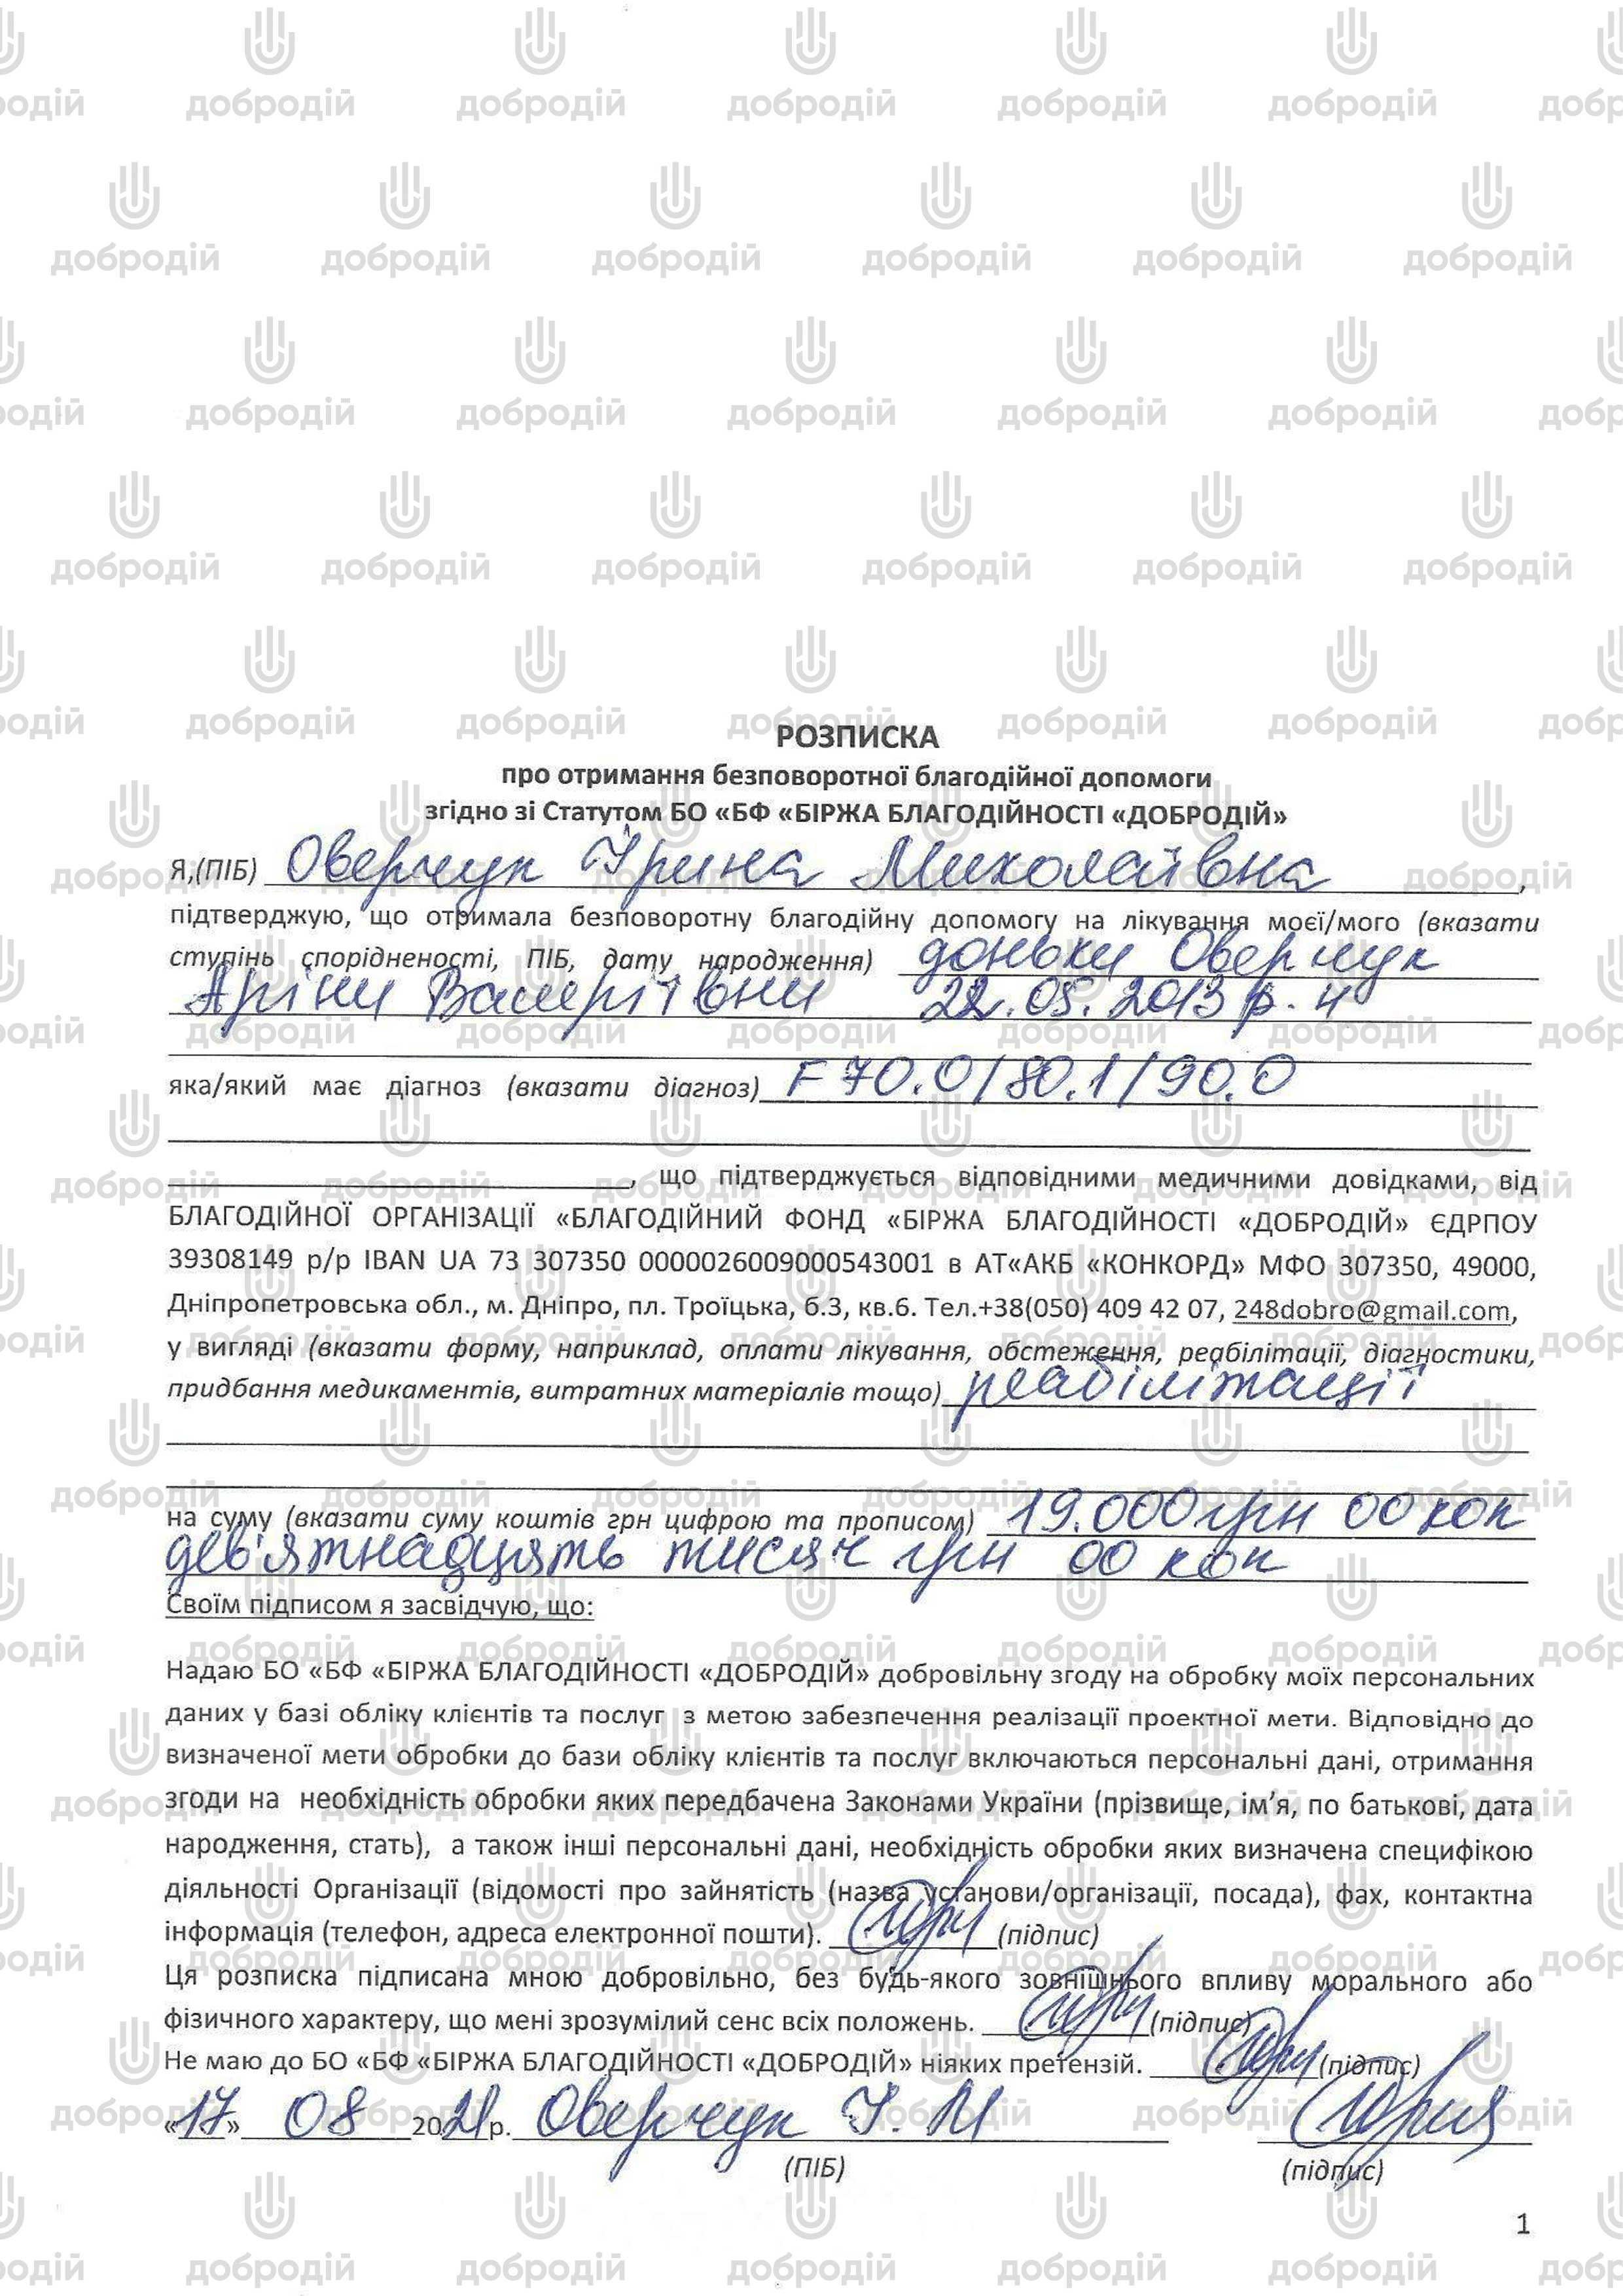 РОЗПИСКА
про отримання безповоротної благодійної допомоги
згідно зі Статутом БО «БФ «БІРЖА БЛАГОДІЙНОСТІ «ДОБРОДІЙ»
Я,(ПІБ) Оверчук Ірина Миколаївна,
підтверджую, що отримала безповоротну благодійну допомогу на лікування моєї/мого (вказати
ступінь спорідненості, ПІБ, дату народження) доньки Оверчук
Аріни Валеріївни 22.05.2013 р.н
яка/який має діагноз (вказати діагноз) F 70.0/80.1/90.0
, що підтверджується відповідними медичними довідками, від
БЛАГОДІЙНОЇ ОРГАНІЗАЦІЇ «БЛАГОДІЙНИЙ ФОНД «БІРЖА БЛАГОДІЙНОСТІ «ДОБРОДІЙ» ЄДРПОУ
39308149 р/р IBAN UA 73 307350 0000026009000543001 в АТ«АКБ «КОНКОРД» МФО 307350, 49000,
Дніпропетровська обл., м. Дніпро, пл. Троїцька, б.3, кв.6. Тел.+38(050) 409 42 07, 248dobro@gmail.com,
у вигляді (вказати форму, наприклад, оплати лікування, обстеження, реабілітації, діагностики,
придбання медикаментів, витратних матеріалів тощо) реабілітації
на суму (вказати суму коштів грн цифрою та прописом) 19.000грн 00 коп
дев'ятнадцять тисяч грн 00 коп
Своїм підписом я засвідчую, що:
Надаю БО «БФ «БІРЖА БЛАГОДІЙНОСТІ «ДОБРОДІЙ» добровільну згоду на обробку моїх персональних
даних у базі обліку клієнтів та послуг з метою забезпечення реалізації проектної мети. Відповідно до
визначеної мети обробки до бази обліку клієнтів та послуг включаються персональні дані, отримання
згоди на необхідність обробки яких передбачена Законами України (прізвище, ім'я, по батькові, дата
народження, стать), а також інші персональні дані, необхідність обробки яких визначена специфікою
діяльності Організації (відомості про зайнятість (назва установи/організації, посада), фах, контактна
інформація (телефон, адреса електронної пошти). (підпис)
Ця розписка підписана мною добровільно, без будь-якого зовнішнього впливу морального або
фізичного характеру, що мені зрозумілий сенс всіх положень. (підпис)
Не маю до БО «БФ «БІРЖА БЛАГОДІЙНОСТІ «ДОБРОДІЙ» ніяких претензій. (підпис)
«17» 08 2021р. Оверчук І. М
(ПІБ) (підпис)
1